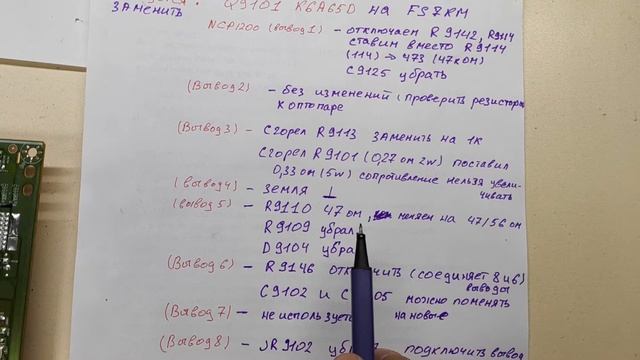 ЗАМЕНИТЬ Q9101 K6A65D на FS7KM
NCP1200 (вывод 1) - отключаем R9142, R9114
ставим вместо R9114
(114) → 473 (47кОМ)
C9125 убрать
(Вывод 2) - Без изменений (проверить резистор
к оптопаре
(Вывод 3) - Сгорел R9113 заменить на 1К
Сгорел R9101 (0,27 ом 2W) поставил
0,33 ом (5W) сопротивление нельзя увели-
чивать
(вывод 4) - земля ⊥
(вывод 5) - R9110 47 ом, меняем на 47/56 ом
R9109 убрал
D9104 убра
(Вывод 6) - R9146 отключить (соединяет 8 и 6)
выводы
C9102 и C 05 можно поменять
на новые
(Вывод 7) - не используетс
(Вывод 8) - JR9102 уб подключить вывод